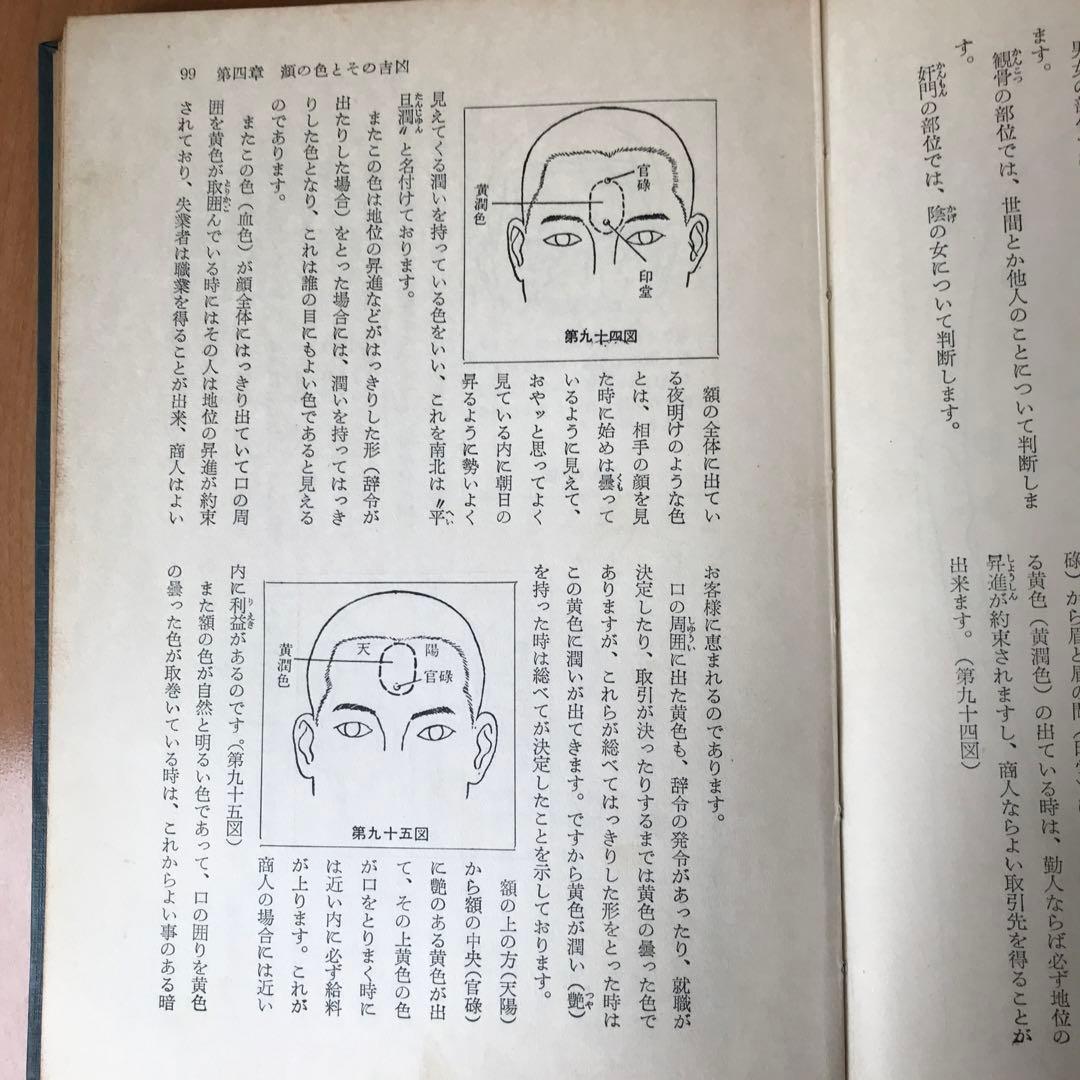 男女の部
ます。
観骨の部位では、世間とか他人のことについて判断しま
す。
奸門の部位では、陰の女について判断します。
碌）から眉と眉の間
る黄色（黄潤色）の出ている時は、勤人ならば必ず地位の
昇進が約束されますし、商人ならよい取引先を得ることが
出来ます。（第九十四図）
99 第四章 顔の色とその吉凶
官碌
黄潤色
印堂
第九十四図
額の全体に出てい
る夜明けのような色
とは、相手の顔を見
た時に始めは曇って
いるように見えて、
おやッと思ってよく
見ている内に朝日の
昇るように勢いよく
見えてくる潤いを持っている色をいい、これを南北は〝平
旦潤〟と名付けております。
またこの色は地位の昇進などがはっきりした形（辞令が
出たりした場合）をとった場合には、潤いを持ってはっき
りした色となり、これは誰の目にもよい色であると見える
のであります。
またこの色（血色）が顔全体にはっきり出ていて口の周
囲を黄色が取囲んでいる時にはその人は地位の昇進が約束
されており、失業者は職業を得ることが出来、商人はよい
お客様に恵まれるのであります。
口の周囲に出た黄色も、辞令の発令があったり、就職が
決定したり、取引が決ったりするまでは黄色の曇った色で
ありますが、これらが総べてはっきりした形をとった時は
この黄色に潤いが出てきます。ですから黄色が潤い（艶）
を持った時は総べてが決定したことを示しております。
天
陽
官碌
黄潤色
第九十五図
額の上の方（天陽）
から額の中央（官碌）
に艶のある黄色が出
て、その上黄色の色
が口をとりまく時に
は近い内に必ず給料
が上ります。これが
商人の場合には近い
内に利益があるのです。（第九十五図）
また額の色が自然と明るい色であって、口の囲りを黄色
の曇った色が取巻いている時は、これからよい事のある暗